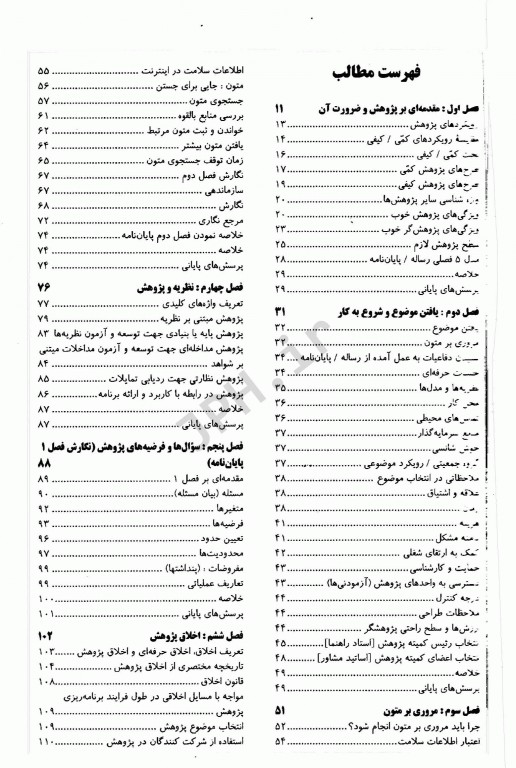 فهرست مطالب
فصل اول : مقدمه‌ای بر پژوهش و ضرورت آن ۱۱
رویکردهای پژوهش ۱۳
مقایسه رویکردهای کمّی / کیفی ۱۴
بحث کمّی / کیفی ۱۶
طرح‌های پژوهش کمّی ۱۷
طرح‌های پژوهش کیفی ۱۹
واژه شناسی سایر پژوهش‌ها ۲۰
ویژگی‌های پژوهش خوب ۲۰
ویژگی‌های پژوهش‌گر خوب ۲۳
سطح پژوهش لازم ۲۵
مدل ۵ فصلی رساله / پایان‌نامه ۲۸
خلاصه ۲۹
پرسش‌های پایانی ۲۹
فصل دوم : یافتن موضوع و شروع به کار ۳۱
یافتن موضوع ۳۲
مروری بر متون ۳۳
جلسات دفاعیات به عمل آمده از رساله / پایان‌نامه ۳۴
جلسات حرفه‌ای ۳۴
نظریه‌ها و مدل‌ها ۳۵
محل کار ۳۶
تماس‌های محیطی ۳۶
منابع سرمایه‌گذار ۳۷
خوش شانسی ۳۷
گروه جمعیتی / رویکرد موضوعی ۳۷
ملاحظاتی در انتخاب موضوع ۳۸
علاقه و اشتیاق ۳۸
زمان ۳۸
هزینه ۴۱
دامنه مشکل ۴۱
کمک به ارتقای شغلی ۴۲
حمایت و کارشناسی ۴۳
دسترسی به واحدهای پژوهش (آزمودنی‌ها) ۴۳
درجه کنترل ۴۴
ملاحظات طراحی ۴۴
ارزش‌ها و سطح راحتی پژوهشگر ۴۴
انتخاب رئیس کمیته پژوهش [استاد راهنما] ۴۵
انتخاب اعضای کمیته پژوهش [اساتید مشاور] ۴۸
خلاصه ۴۹
پرسش‌های پایانی ۴۹
فصل سوم : مروری بر متون ۵۱
چرا باید مروری بر متون انجام شود؟ ۵۲
اعتبار اطلاعات سلامت ۵۴
اطلاعات سلامت در اینترنت ۵۵
متون : جایی برای جستن ۵۶
جستجوی متون ۵۷
بررسی منابع بالقوه ۶۱
خواندن و ثبت متون مرتبط ۶۲
یافتن متون بیشتر ۶۴
زمان توقف جستجوی متون ۶۵
نگارش فصل دوم ۶۷
سازماندهی ۶۷
نگارش ۶۸
مرجع نگاری ۷۲
خلاصه نمودن فصل دوم پایان‌نامه ۷۴
خلاصه ۷۴
پرسش‌های پایانی ۷۴
فصل چهارم : نظریه و پژوهش ۷۶
تعریف واژه‌های کلیدی ۷۷
پژوهش مبتنی بر نظریه ۷۹
پژوهش پایه یا بنیادی جهت توسعه و آزمون نظریه‌ها ۸۳
پژوهش مداخله‌ای جهت توسعه و آزمون مداخلات مبتنی
بر شواهد ۸۴
پژوهش نظارتی جهت ردیابی تمایلات ۸۵
پژوهش در رابطه با کاربرد و ارائه برنامه ۸۶
خلاصه ۸۷
پرسش‌های پایانی ۸۷
فصل پنجم : سؤال‌ها و فرضیه‌های پژوهش (نگارش فصل ۱
پایان‌نامه) ۸۸
مقدمه‌ای بر فصل ۱ ۸۹
مسئله (بیان مسئله) ۹۰
متغیرها ۹۲
فرضیه‌ها ۹۳
تعیین حدود ۹۶
محدودیت‌ها ۹۷
مفروضات : (پنداشتها) ۹۹
تعاریف عملیاتی ۹۹
خلاصه ۱۰۰
پرسش‌های پایانی ۱۰۱
فصل ششم : اخلاق پژوهش ۱۰۲
تعریف اخلاق، اخلاق حرفه‌ای و اخلاق پژوهش ۱۰۳
تاریخچه مختصری از اخلاق پژوهش ۱۰۴
قانون اخلاق ۱۰۸
مواجه با مسایل اخلاقی در طول فرایند برنامه‌ریزی
پژوهش ۱۰۹
انتخاب موضوع پژوهش ۱۰۹
استفاده از شرکت کنندگان در پژوهش ۱۱۰